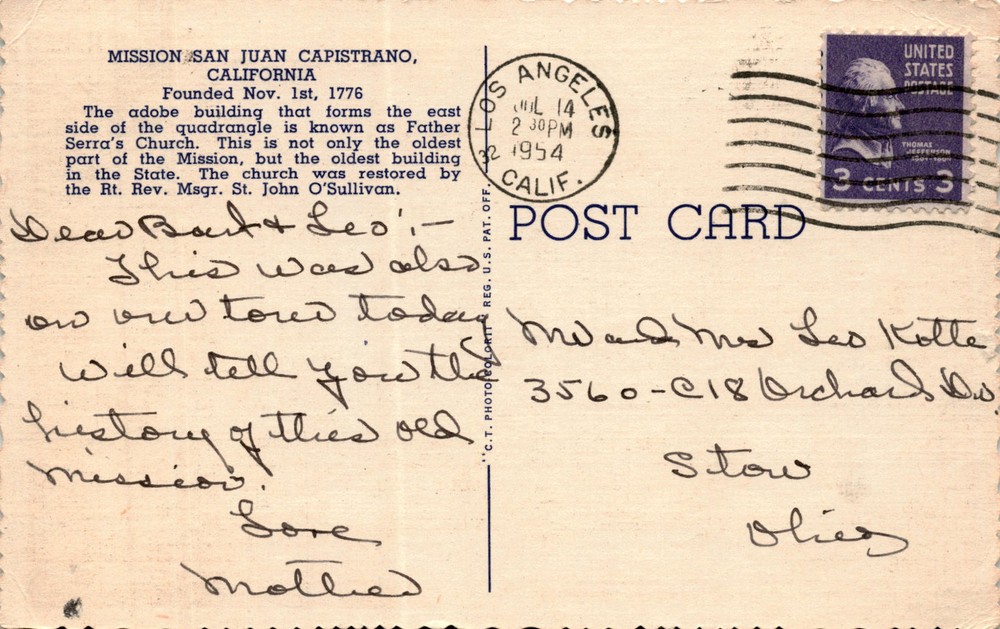 MISSION SAN JUAN CAPISTRANO,
CALIFORNIA
Founded Nov. 1st, 1776
The adobe building that forms the east
side of the quadrangle is known as Father
Serra's Church. This is not only the oldest
part of the Mission, but the oldest building
in the State. The church was restored by
the Rt. Rev. Msgr. St. John O'Sullivan.
Dear & Leo :-
This was also
on our tour today
will tell you the
history of this old
mission.
Love
Mother
"C.T. PHOTO-COLORIT" REG. U.S. PAT. OFF.
LOS ANGELES
JUL 14
2 30PM
1954
32
CALIF.
UNITED
STATES
POSTAGE
THOMAS
JEFFERSON
1801-1809
3 CENTS 3
POST CARD
Mr and Mrs Leo Kotte
3560-C18 Orchard Dr.
Stow
Ohio